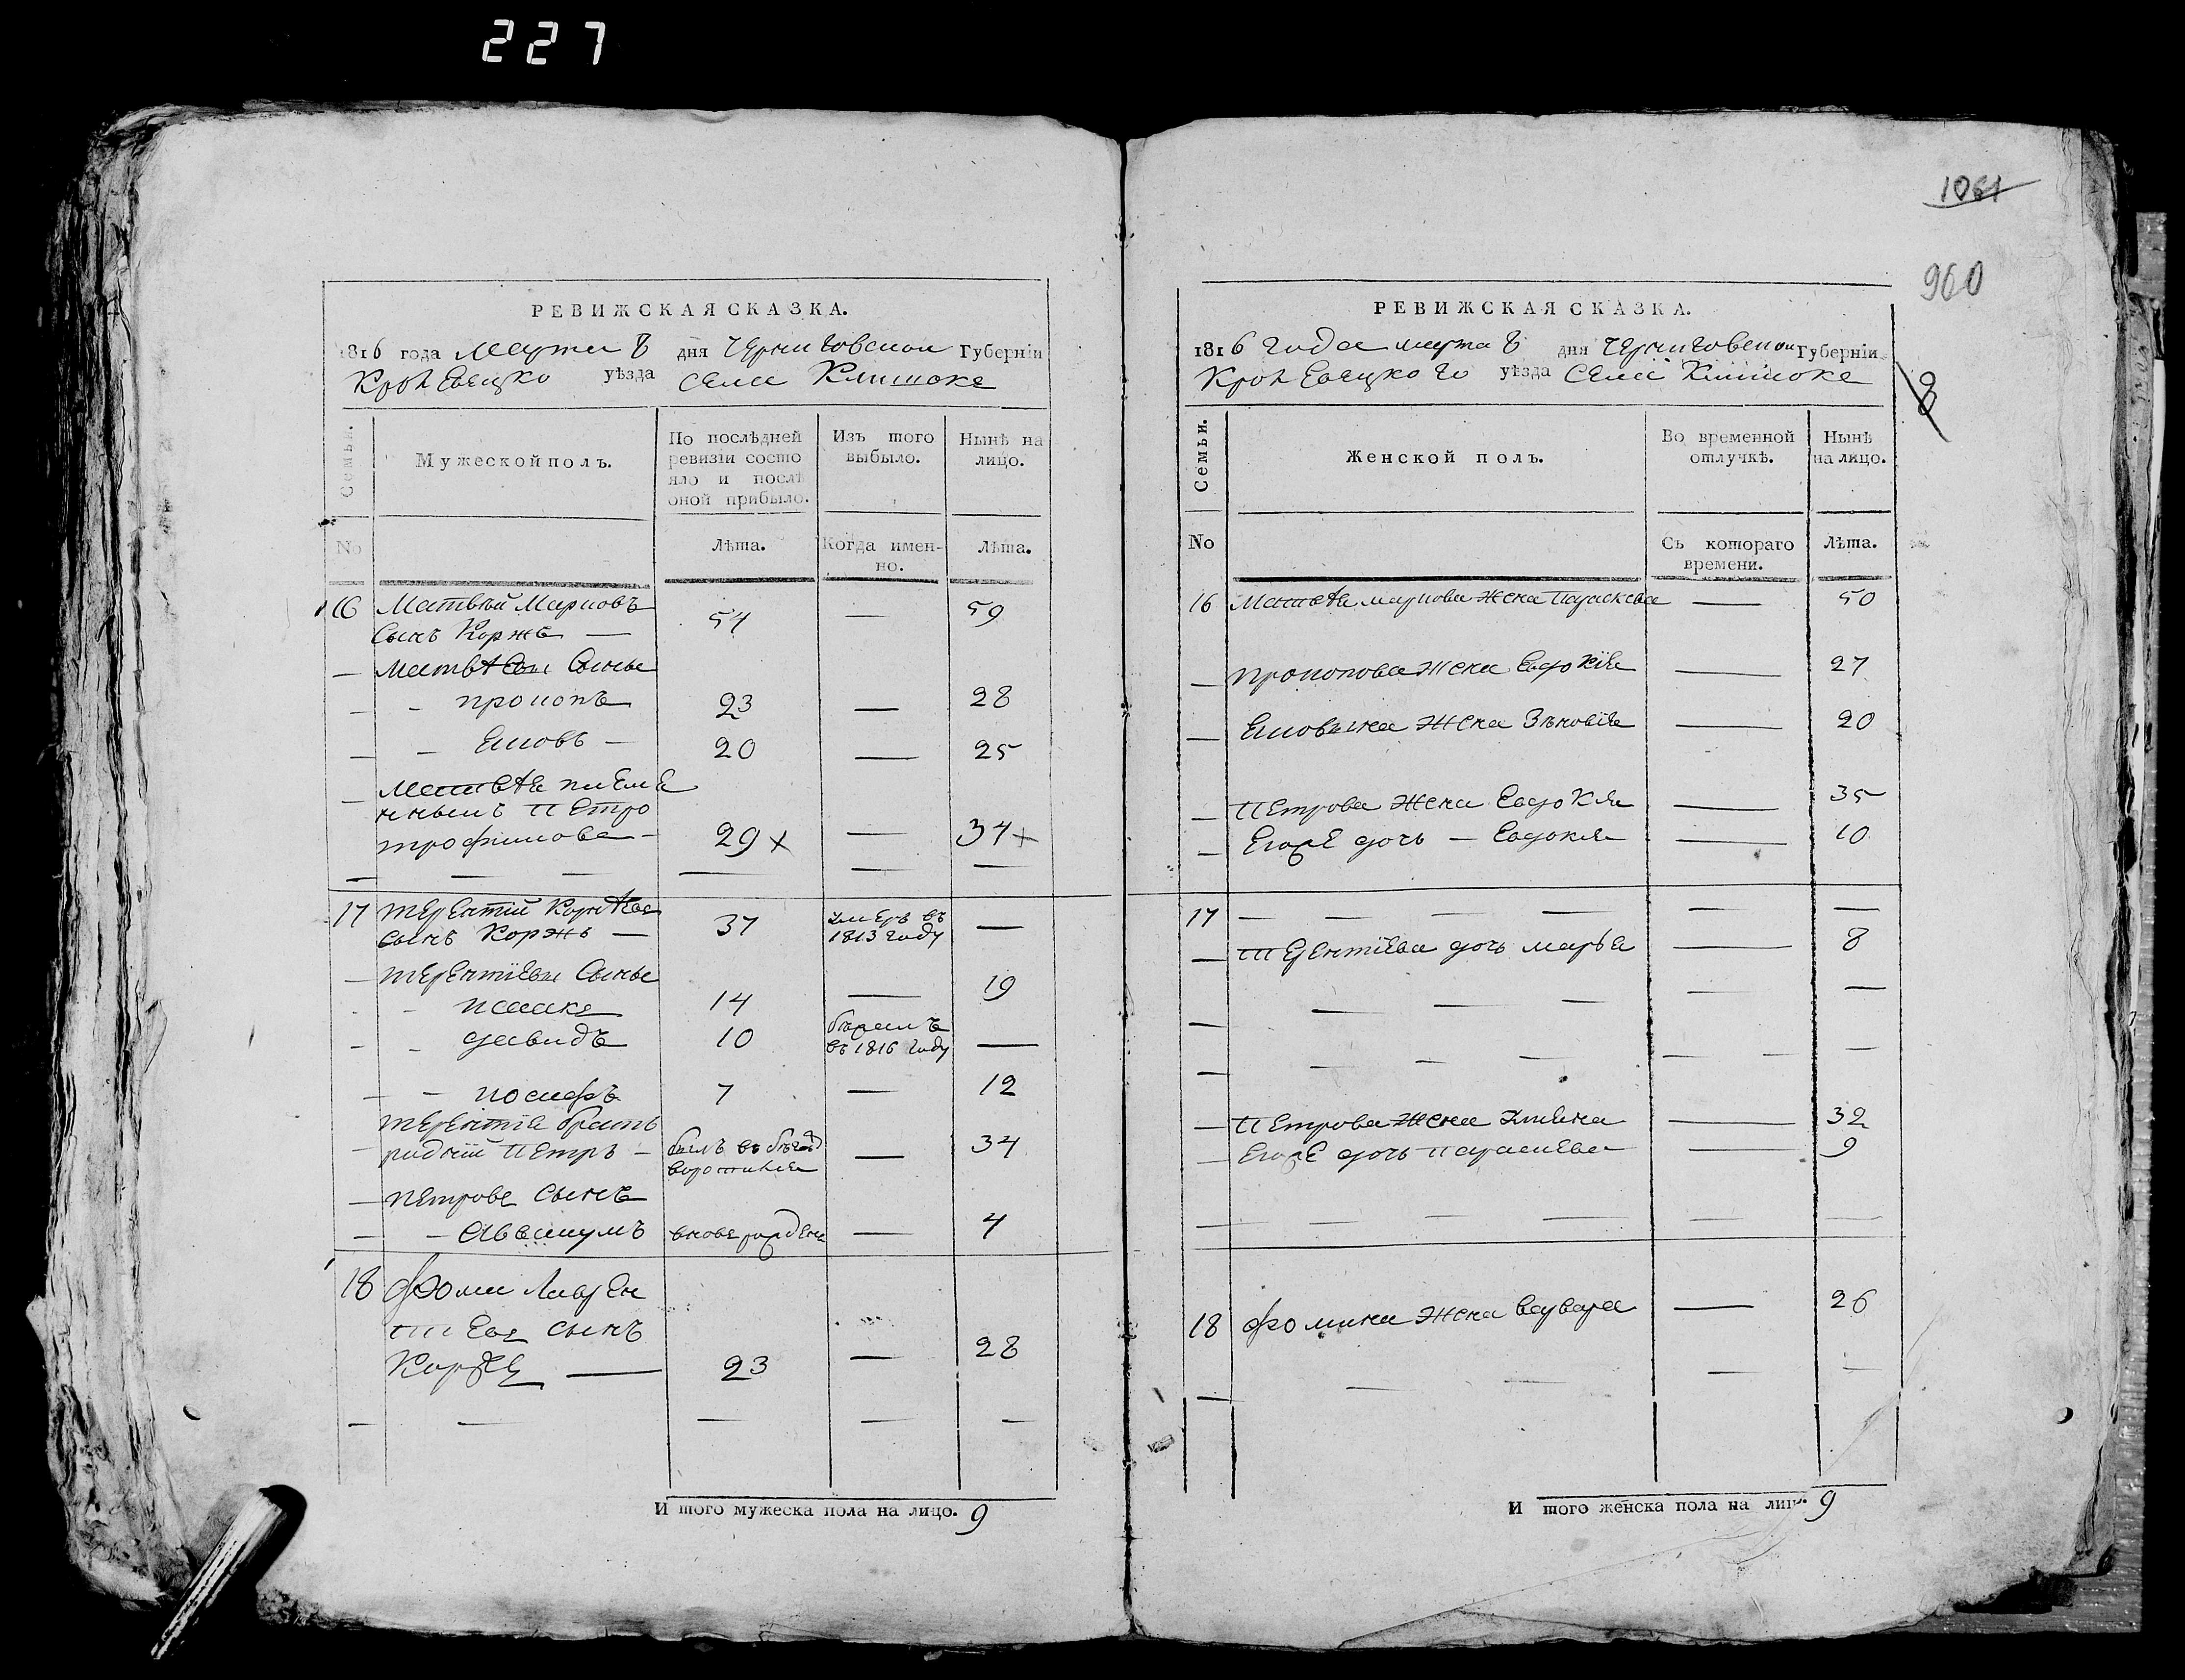 227
РЕВИЖСКАЯ СКАЗКА.
1816 года марта 8 дня Черниговской Губернiи
Кролевецко уѣзда села Клишокъ
Семьи.
Мужеской полъ.
По послѣдней ревизiи состояло и послѣ оной прибыло.
Изъ того выбыло.
Нынѣ на лицо.
No
Лѣта.
Когда именно.
Лѣта.
16 Матвѣй Марковъ
сынъ Коржъ — 54 — 59
— Матвѣевы сынье
— - прокопъ 23 — 28
— - Яковъ — 20 — 25
— Матвѣя племя
нныкъ Петро
трофимовъ - 29 x — 34 x
— — — — — —
17 терентiй Корнѣевъ
сынъ Коржъ — 37 умеръ въ 1813 году —
— терентiевы сынье
- исаакъ 14 — 19
- - давидъ 10 въ 1816 году —
- - иосифъ 7 — 12
терентiя братъ
- родний Петръ - былъ въ бѣгах — 34
— петровъ сынъ
— - Аввакумъ вновь рожденъ — 4
18 Фома Лаврен
тiевъ сынъ
Коржъ — 23 — 28
— — — — —
И того мужеска пола на лицо. 9
1061
960
8
РЕВИЖСКАЯ СКАЗКА.
1816 года марта 8 дня Черниговской Губернiи
Кролевецкого уѣзда села Клишокъ
Семьи.
Женской полъ.
Во временной отлучкѣ.
Нынѣ на лицо.
No
Съ котораго времени.
Лѣта.
16 Матвѣя маркова жена Параскева — 50
— прокопова жена Евдокiя — 27
— Яковова жена Зѣновiя — 20
— Петрова жена Евдокия — 35
— Егоже дочь — Евдокия — 10
17 — — — — — —
— терентiева дочь марья — 8
— — — — — —
— — — — — —
— Петрова жена Ульяна — 32
— Егоже дочь — 9
— — — — — —
18 Фомина жена варвара — 26
— — — — —
И того женска пола на лицо. 9